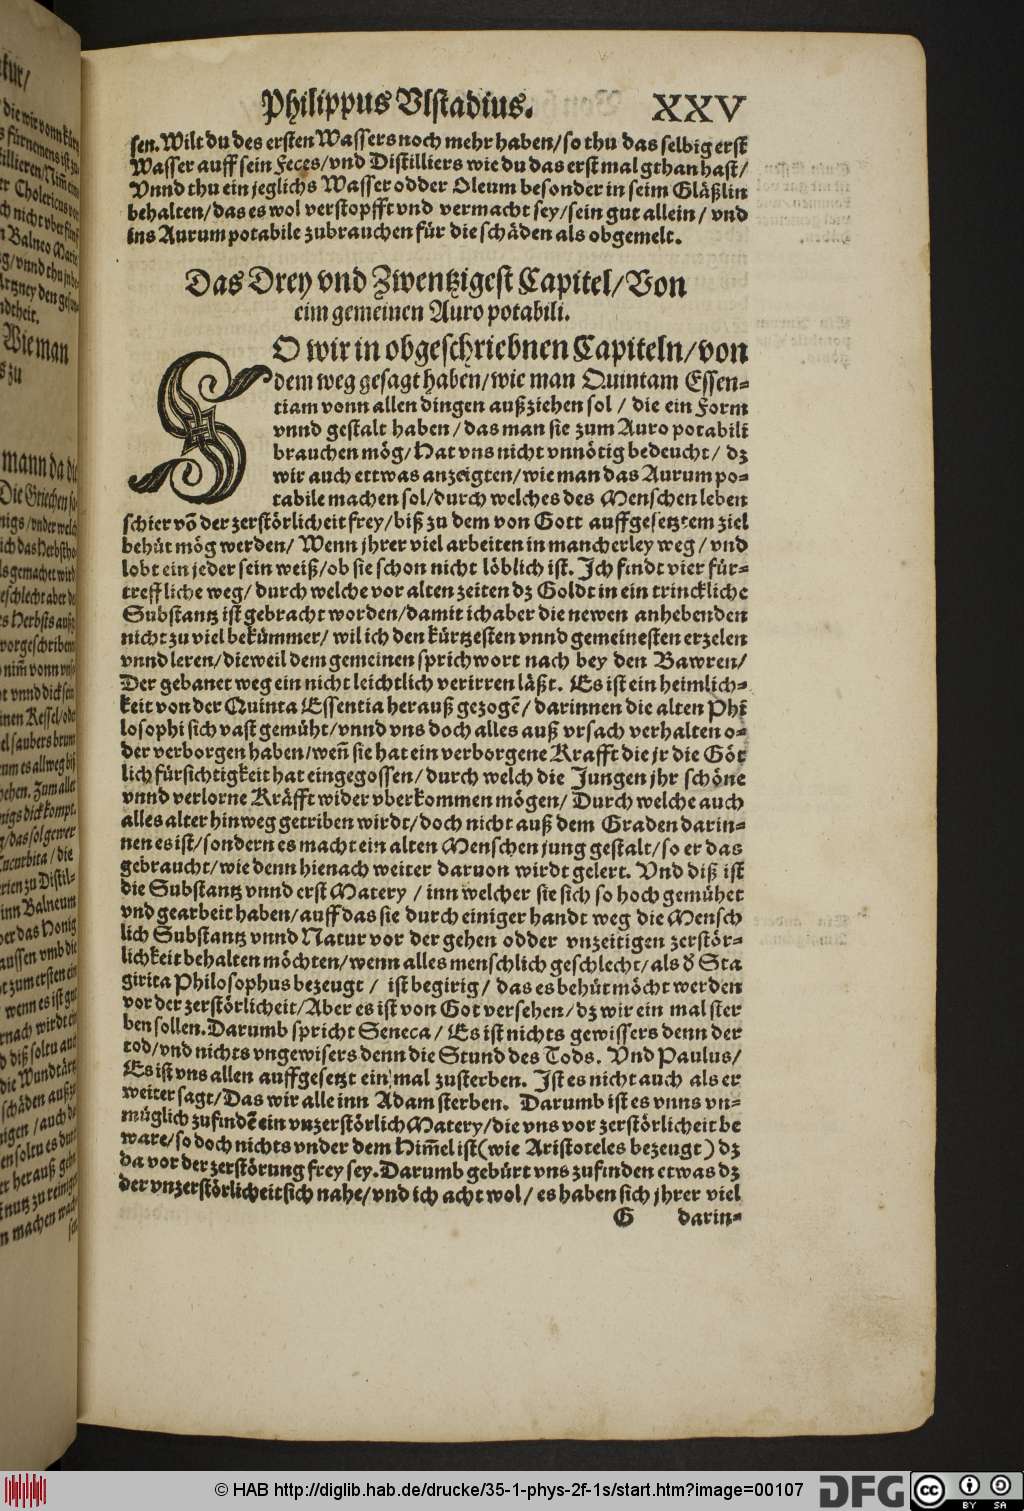 Philippus Vlstadius. XXV
sen. Wilt du des ersten Wassers noch mehr haben/ so thu das selbig erst
Wasser auff sein Feces/ vnd Distilliers wie du das erst mal gthan hast/
Vnnd thu ein jeglichs Wasser odder Oleum besonder in seim Gläßlin
behalten/ das es wol verstopfft vnd vermacht sey/ sein gut allein/ vnd
ins Aurum potabile zubrauchen für die schäden als obgemelt.
Das Drey vnd Zwentzigest Capitel/ Von
eim gemeinen Auro potabili.
SO wir in obgeschriebnen Capiteln/ von
dem weg gesagt haben/ wie man Quintam Essen-
tiam vonn allen dingen außziehen sol / die ein Form
vnnd gestalt haben / das man sie zum Auro potabili
brauchen mög/ Hat vns nicht vnnötig bedeucht/ dz
wir auch ettwas anzeigten/ wie man das Aurum po-
tabile machen sol/ durch welches des Menschen leben
schier võ der zerstörlicheit frey/ biß zu dem von Gott auffgesetztem ziel
behüt mög werden/ Wenn jhrer viel arbeiten in mancherley weg / vnd
lobt ein jeder sein weiß/ ob sie schon nicht löblich ist. Ich findt vier für-
treffliche weg/ durch welche vor alten zeiten dz Goldt in ein trinckliche
Substantz ist gebracht worden/ damit ich aber die newen anhebenden
nicht zu viel bekümmer/ wil ich den kürtzesten vnnd gemeinesten erzelen
vnnd leren/ dieweil dem gemeinen sprichwort nach bey den Bawren/
Der gebanet weg ein nicht leichtlich verirren läßt. Es ist ein heimlich-
keit von der Quinta Essentia herauß gezogẽ/ darinnen die alten Phi
losophi sich vast gemüht/ vnnd vns doch alles auß vrsach verhalten o-
der verborgen haben/ weñ sie hat ein verborgene Krafft die jr die Göt
lich fürsichtigkeit hat eingegossen/ durch welch die Jungen jhr schöne
vnnd verlorne Kräfft wider vberkommen mögen/ Durch welche auch
alles alter hinweg getriben wirdt/ doch nicht auß dem Graden darin-
nen es ist/ sondern es macht ein alten Menschen jung gestalt/ so er das
gebraucht/ wie denn hienach weiter daruon wirdt gelert. Vnd diß ist
die Substantz vnnd erst Matery / inn welcher sie sich so hoch gemühet
vnd gearbeit haben/ auff das sie durch einiger handt weg die Mensch
lich Substantz vnnd Natur vor der gehen odder vnzeitigen zerstör-
lichkeit behalten möchten/ wenn alles menschlich geschlecht/ als d Sta
girita Philosophus bezeugt / ist begirig / das es behüt möcht werden
vor der zerstörlicheit/ Aber es ist von Got versehen/ dz wir ein mal ster
ben sollen. Darumb spricht Seneca / Es ist nichts gewissers denn der
tod/ vnd nichts vngewisers denn die Stund des Tods. Vnd Paulus/
Es ist vns allen auffgesetzt ein mal zusterben. Ist es nicht auch als er
weiter sagt/ Das wir alle inn Adam sterben. Darumb ist es vnns vn-
müglich zufindẽ ein vnzerstörlich Matery/ die vns vor zerstörlicheit be
ware/ so doch nichts vnder dem Him̃el ist (wie Aristoteles bezeugt) dz
da vor der zerstörung frey sey. Darumb gebürt vns zufinden etwas dz
der vnzerstörlicheit sich nahe/ vnd ich acht wol/ es haben sich jhrer viel
G darin-
© HAB http://diglib.hab.de/drucke/35-1-phys-2f-1s/start.htm?image=00107
DFG
cc BY SA